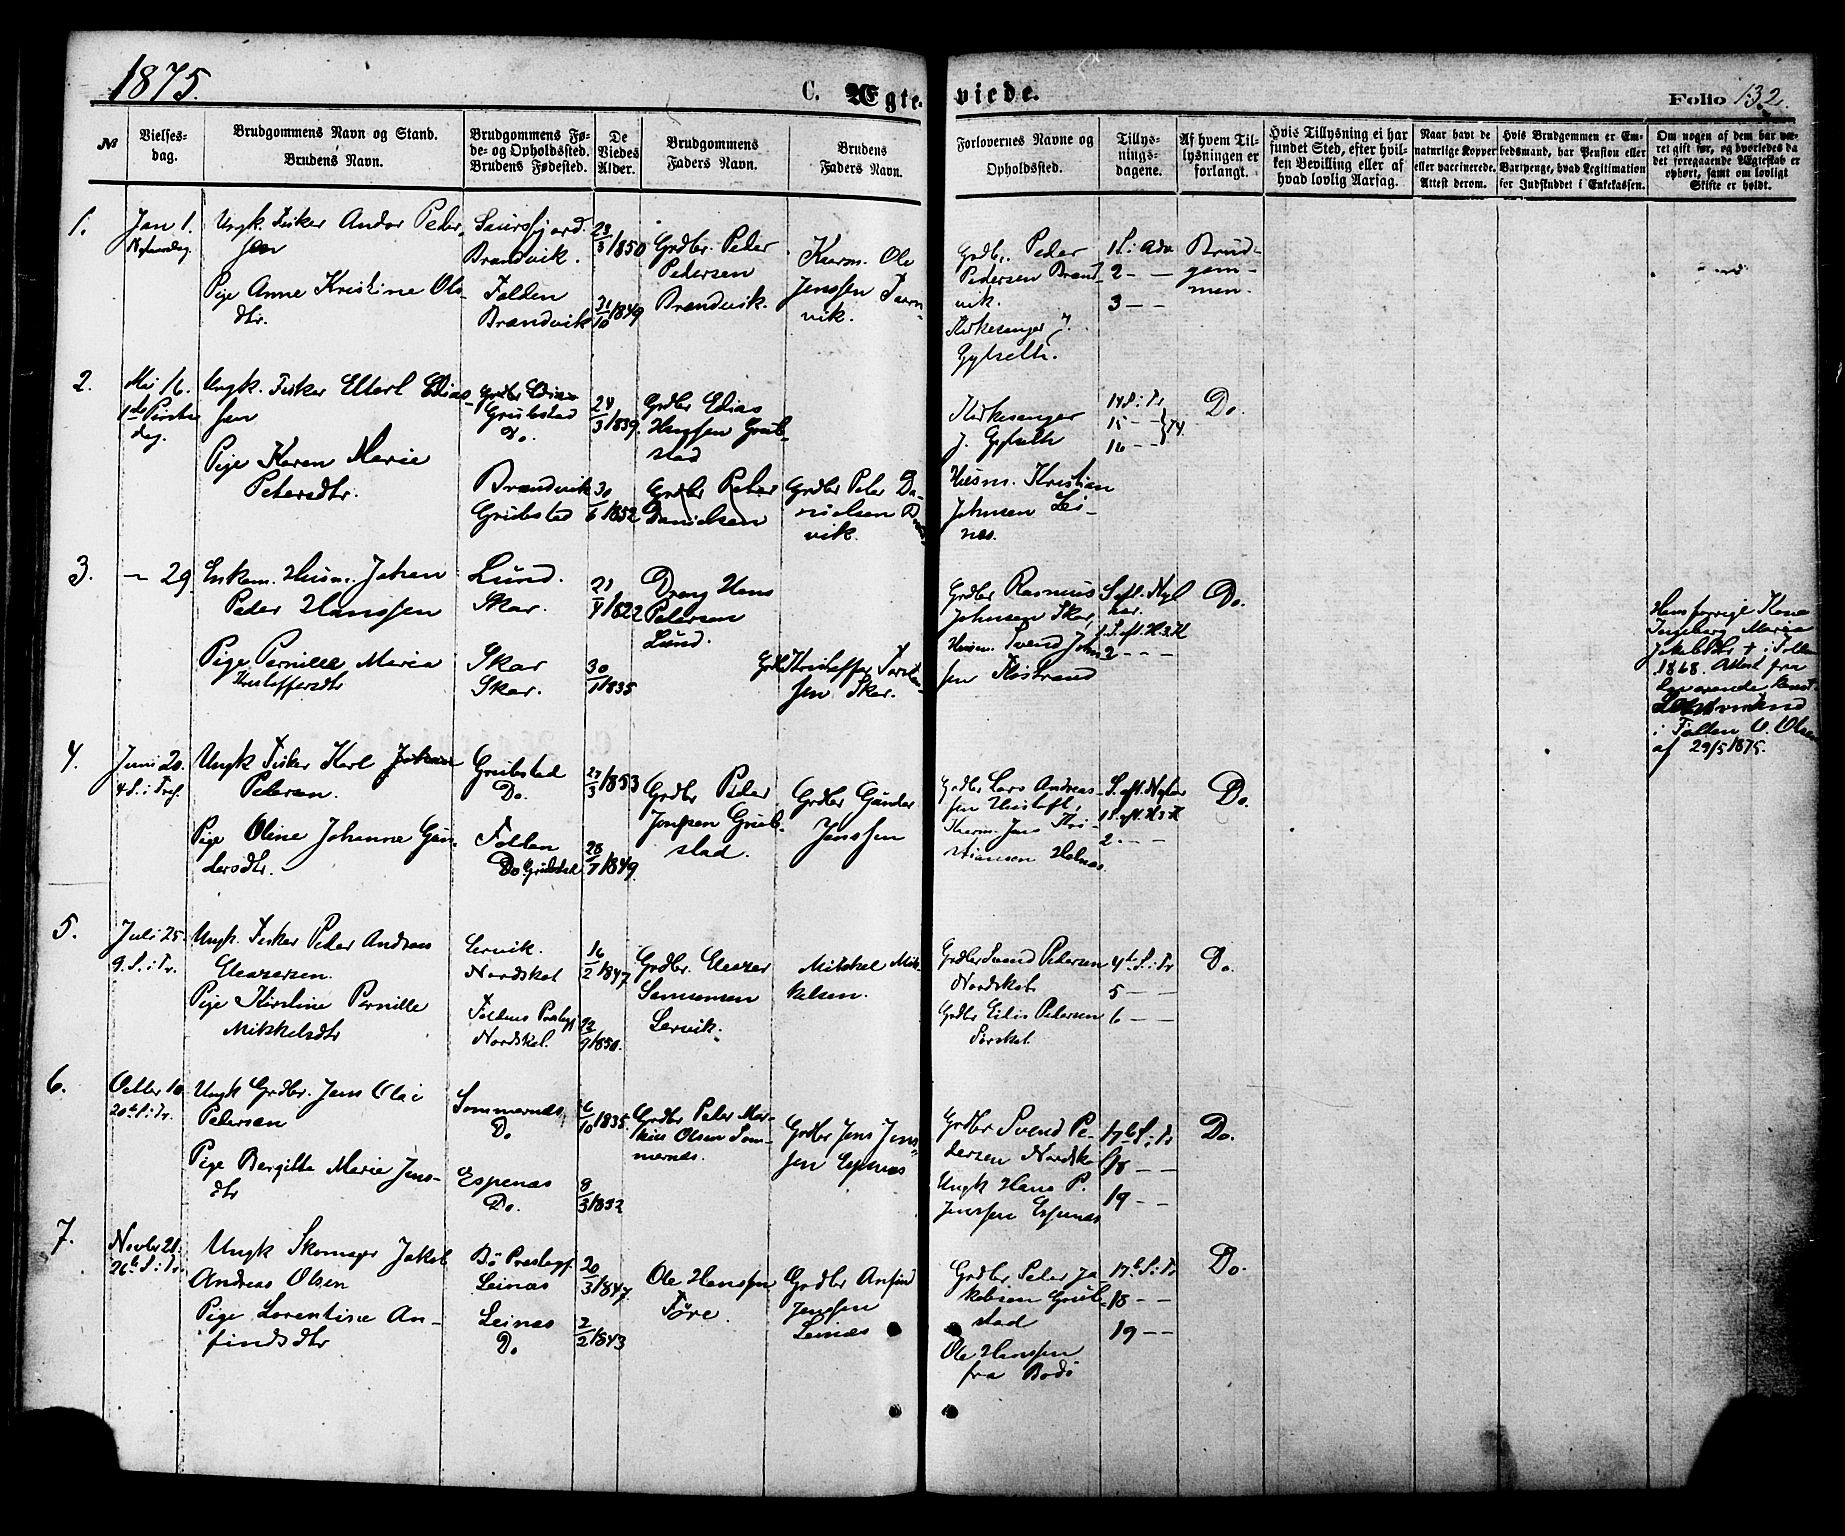 1875.
C. Ægte-
viede.
Folio 132.
№
Vielses-
dag.
Brudgommens Navn og Stand.
Brudens Navn.
Brudgommens Fø-
de- og Opholdssted.
Brudens Fødested.
De
Viedes
Alder.
Brudgommens
Faders Navn.
Brudens
Faders Navn.
Forlovernes Navne og
Opholdssted.
Tillys-
nings-
dagene.
Af hvem Til-
lysningen er
forlangt.
Hvis Tillysning ei har
fundet Sted, efter hvil-
ken Bevilling eller af
hvad lovlig Aarsag.
Naar havt de
naturlige Kopper
eller vaccinerede.
Attest derom.
Hvis Brudgommen er Em-
bedsmand, har Pension eller
Vartpenge, hvad Legitimation
for Indskuddet i Enkekassen.
Om nogen af dem har væ-
ret gift før, og hvorledes da
det foregaaende Ægteskab er
ophørt, samt om lovligt
Skifte er holdt.
1.
Jan 1.
Nytaarsdag.
Ungk. Fisker Andor Peder-
sen
Pige Anne Kristine Ols-
dtr.
Saursfjord.
Brandvik.
Folden
Brandvik
23/3 1850
31/10 1849
Grdbr. Peder
Pedersen
Brandvik.
Kaarm. Ole
Jenssen
vik.
Grdb. Peder
Pedersen Brand-
vik.
Kirkesanger J.
Gylseth.
1 S. i Adv.
2 — —
3 — —
Brud-
gom-
men.
2.
Mai 16.
1ste Pintse
dag.
Ungk. Fisker Ellert Edias-
sen
Pige Karen Marie
Petersdtr.
Grdbr Edias
Grubstad
Do.
Brandvik
Grubstad
24/3 1839.
30/6 1852
Grdbr Edias
Hugsen Grub-
stad
Grdbr Peter
Danielsen
Grdbr Peter Da-
nielsen
vik.
Kirkesanger
J. Gylseth
Husm. Kristian
Johnsen Lei-
nes.
14 S. i Tr
15 — —
16 — —
74.
Do.
3.
— 29.
Enkem. Husm. Johan
Peder Hanssen
Pige Pernille Maria
Kristoffersdtr
Lund.
Skar.
Skar
Skar.
21/4 1822
30/1 1835
Dreng Hans
Petersen
Lund.
Grdbr Kristoffer Torste-
sen Skar.
Grdbr Rasmus
Johnsen Skar,
Husm. Svend John-
sen Kostrand
S. eft. Nyt
aar.
1 S. eft. H. 3 K
2 — — —
Do.
Hans forrige Kone
Ingeborg Maria
Jakobsdtr † i Folden
1868. Attest fra
Lensmand
i Folden O. Olsen
af 29/5 1875.
4.
Juni 20.
4 S. i Tref.
Ungk Fisker Karl Johan
Petersen.
Pige Oline Johanna Gun-
dersdtr.
Grubstad
Do.
Folden
Do Grubstad
27/3 1853
28/7 1849.
Grdbr Peter
Jonssen Grub-
stad.
Grdbr Gunder
Jenssen
Grdbr Lars Andreas-
sen Hustoft,
Kaarm. Jens Kri-
stiansen Helnæs.
S. eft. Nytaar
1 S. eft. H 3 K
2. — —
Do.
5.
Juli 25.
9. S. i Tr.
Ungk. Fisker Peder Andreas
Eleazersen.
Pige Kirstine Pernille
Mikkelsdtr
Lervik.
Nordskot
Foldens Prstgj
Nordskot.
16/2 1847
22/9 1850.
Grdbr. Eleazer
Samuelsen
Lervik.
Mikkel Mik-
kelsen.
Grdbr Svend Pedersen
Nordskot.
Grdbr Eilis Petersen
Sørskot
4de S. i Tr
5 — —
6 — —
Do.
6.
Octbr 10
20de S. i Tr.
Ungk Grdbr. Jens Olai
Pedersen
Pige Bergitta Marie Jens-
dtr
Sommernæs
Do
Espenæs
Do.
6/10 1835.
8/3 1852
Grdbr Peter Mar-
kus Olsen Som-
mernæs.
Grdbr Jens Jens-
sen Espenæs
Grdbr Svend Pe-
dersen Nordskot
Ungk Hans P.
Jenssen Espenæs
17de S. i Tr
18 — —
19 — —
Do.
7.
Novbr 21.
26de S. i Tr.
Ungk Skomager Jakob
Andreas Olsen
Pige Lorentine An-
findsdtr
Bø Præstegj.
Leinæs
Leinæs
Do
20/3 1847.
2/2 1843
Ole Hanssen
Føre.
Grdbr Anfind
Jenssen
Leinæs
Grdbr Peter Ja-
kobsen Grub-
stad
Ole Hanssen
fra Bodø
17de S. i Tr
18 — —
19 — —
Do.